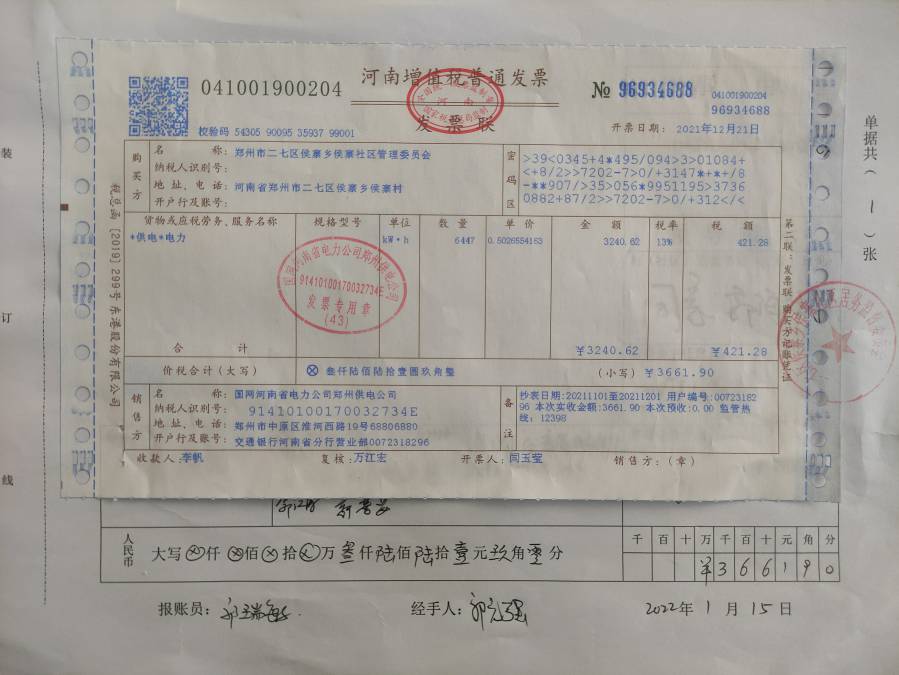 河南增值税普通发票
041001900204
发票联
№ 96934688
041001900204
96934688
校验码 54305 90095 35937 99001
开票日期: 2021年12月21日
购买方
名 称: 郑州市二七区侯寨乡侯寨社区管理委员会
纳税人识别号:
地 址、电 话: 河南省郑州市二七区侯寨乡侯寨村
开户行及账号:
密码区
>39<0345+4*495/094>3>01084+
<+8/2>>7202-7>0/+3147*+*+/8
-**907/>35>056*9951195>3736
0882+87/2>>7202-7>0/+312</<
货物或应税劳务、服务名称 规格型号 单位 数 量 单 价 金 额 税率 税 额
*供电*电力 kW·h 6447 0.5026554163 3240.62 13% 421.28
合 计 ¥3240.62 ¥421.28
价税合计（大写） ⊗ 叁仟陆佰陆拾壹圆玖角整 （小写）¥3661.90
销售方
名 称: 国网河南省电力公司郑州供电公司
纳税人识别号: 91410100170032734E
地 址、电 话: 郑州市中原区淮河西路19号68806880
开户行及账号: 交通银行河南省分行营业部0072318296
备注
抄表日期:20211101至20211201 用户编号:00723182
96 本次实收金额:3661.90 本次预收:0.00 监管热
线: 12398
收款人:李帆 复核:万江宏 开票人:闫玉莹 销售方:（章）
税总函 [2019] 299号 东港股份有限公司
第二联:发票联 购买方记账凭证
国网河南省电力公司郑州供电公司
91410100170032734E
发票专用章
(43)
单据共（ 1 ）张
装
订
线
人民币 大写 ⊗仟⊗佰⊗拾⊗万叁仟陆佰陆拾壹元玖角零分
千 百 十 万 千 百 十 元 角 分
¥ 3 6 6 1 9 0
报账员: 经手人: 2022年 1 月 15 日